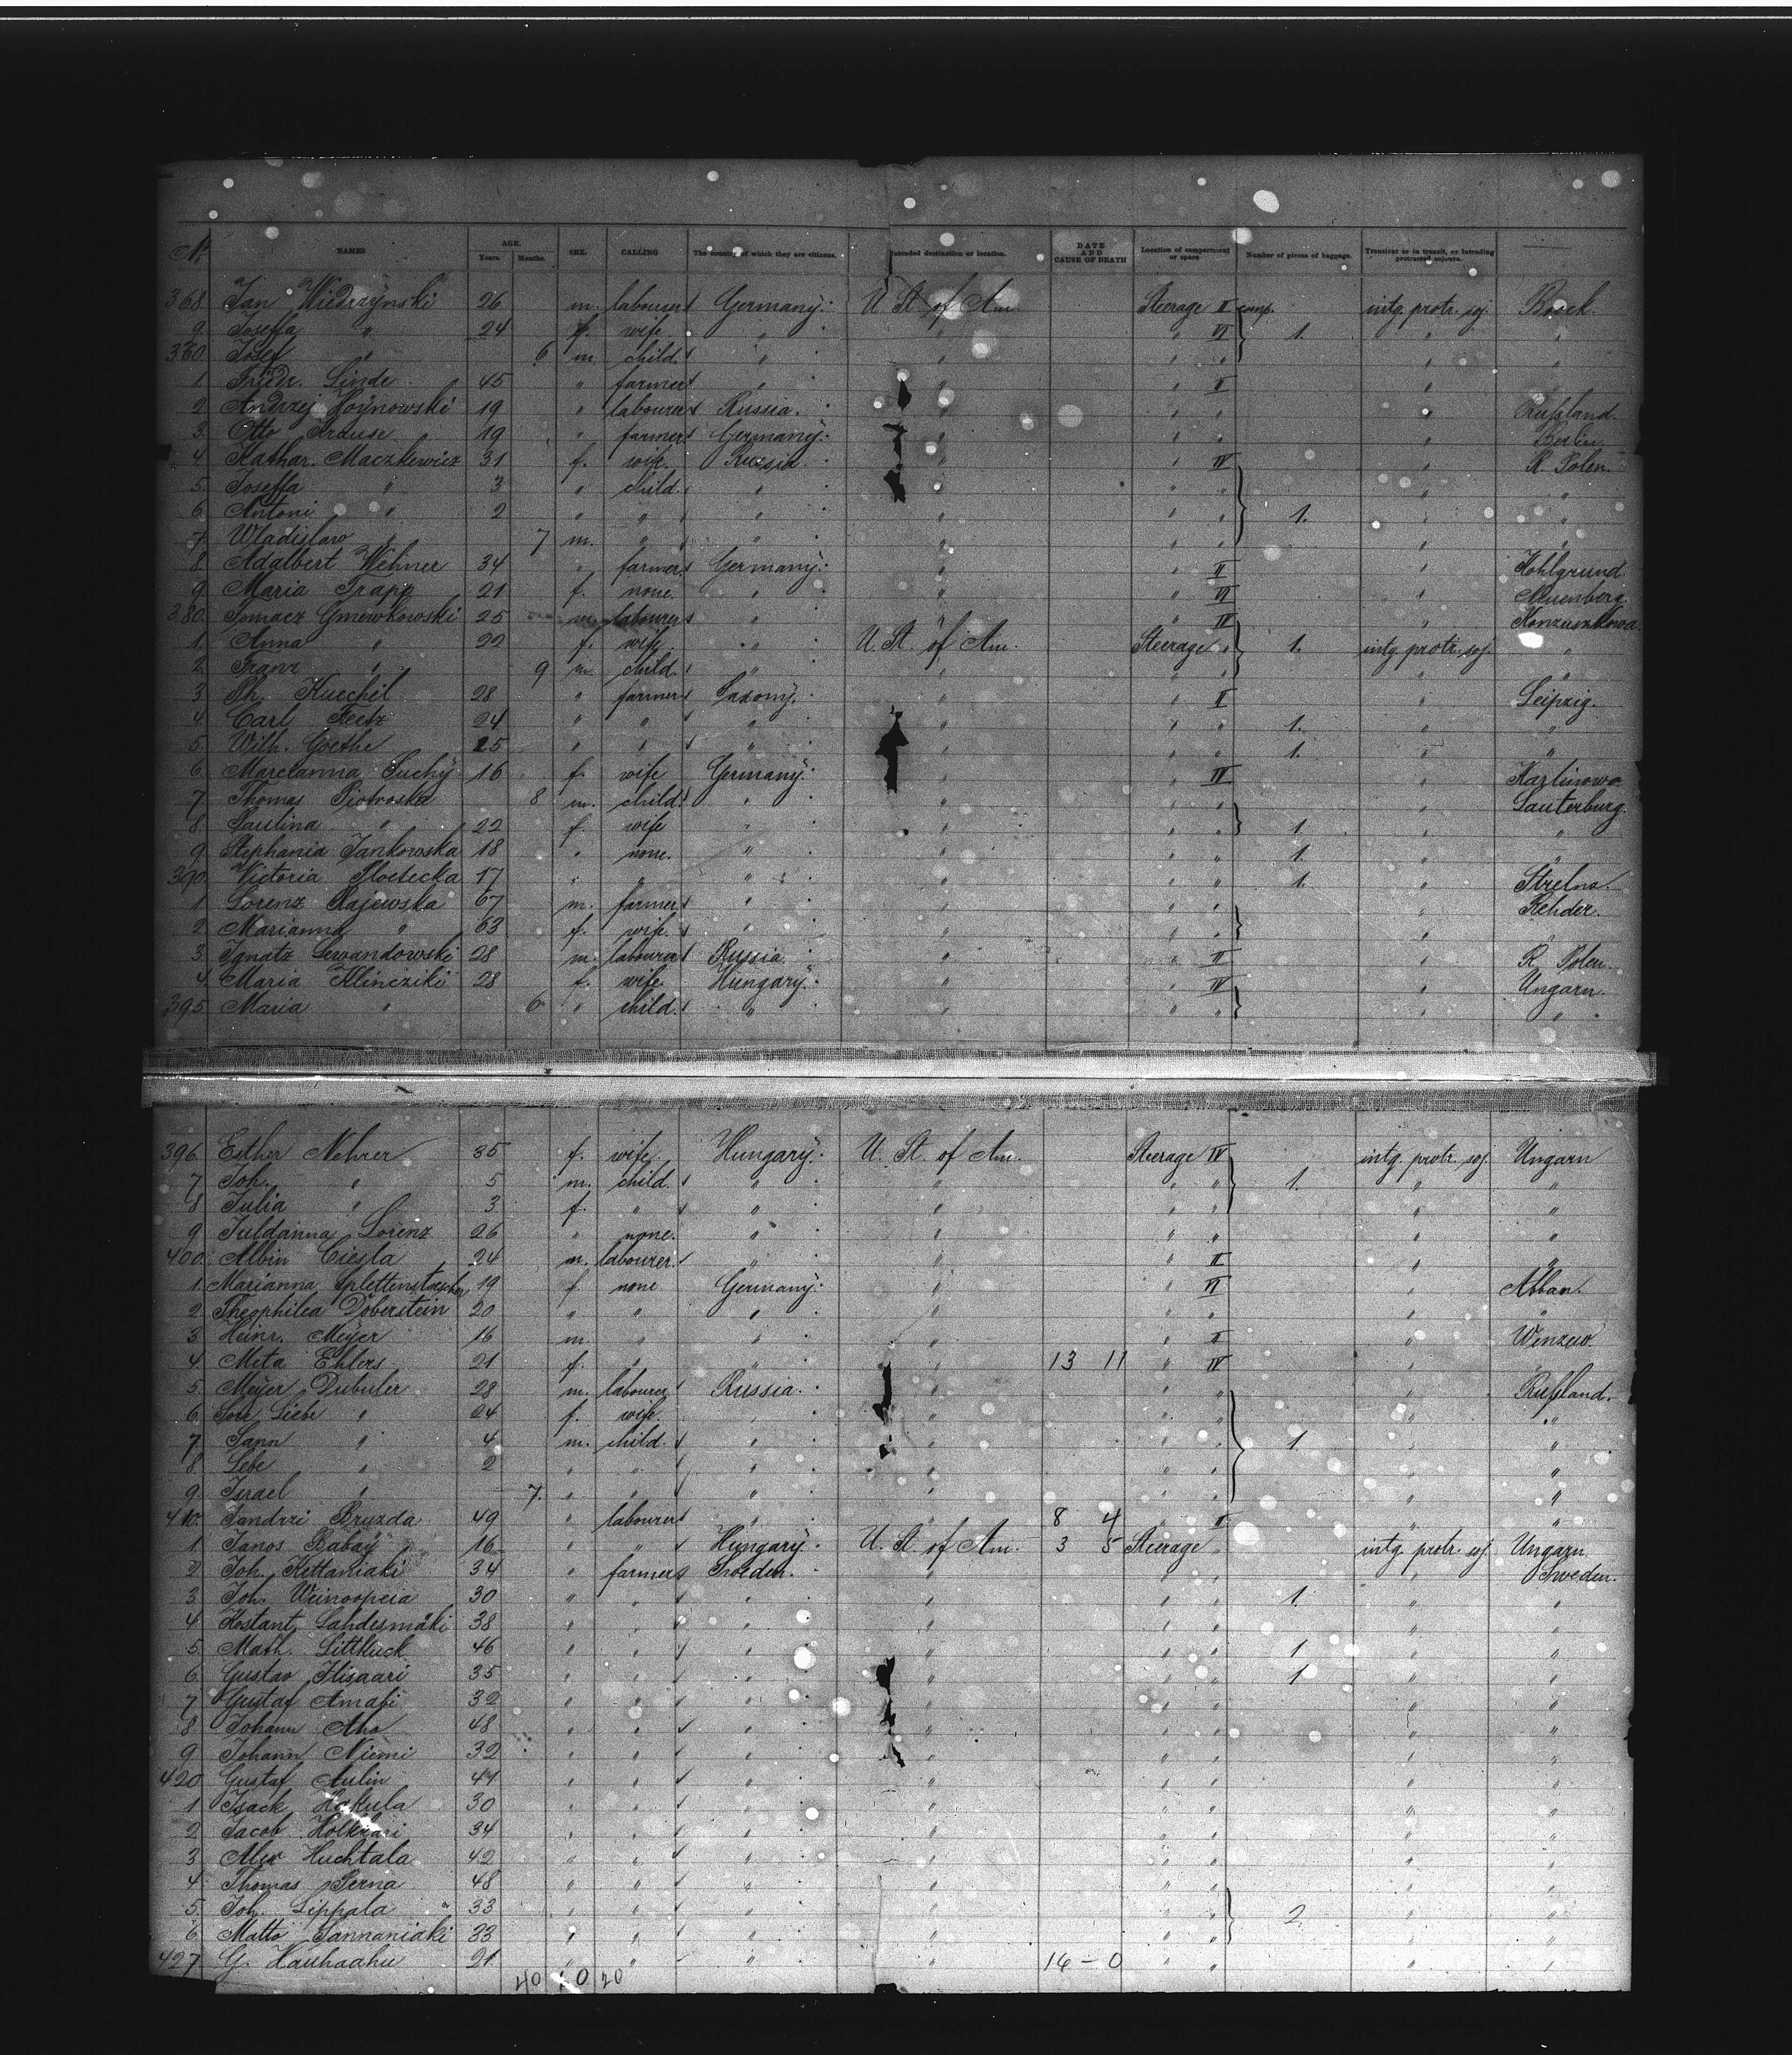 No. NAMES AGE. Years. Months. SEX. CALLING The country of which they are citizens. Intended destination or location. DATE AND CAUSE OF DEATH Location of compartment or space Number of pieces of baggage. Transient or in transit, or intending protracted sojourn.
368. Jan Wiedrzynski 26 m. labourer Germany: U. St. of Am. Steerage II comp. intg. protr. soj. Boock.
9. Joseffa " 24 f. wife " " " VI 1. " "
360. Josef " 6 m child. " " " " " "
1. Friedr. Linde 45 " farmer " " " II "
2 Andrzej Hoynowski 19 " labourer Russia. " " " " Rußland.
3. Otto Krause 19 " farmer Germany: " " " " Berlin
4 Kathar. Maczkewicz 31 f. wife. Russia. " " IV " R. Polen.
5. Joseffa " 3 " child. " " " " " "
6. Antoni " 2 " " " " " " 1. " "
7. Wladislaw " 7 m. " " " " " " "
8 Adalbert Wehner 34 " farmer Germany: " " II " Kohlgrund
9 Maria Trapp 21 f. none. " " " VI " Neuenberg.
380. Tomacz Gmewkowski 25 m labourer " " " IV "
1. Anna " 22 f. wife " U. St. of Am. Steerage " 1. intg. protr. soj. "
2. Franz " 9 m child. " " " " " "
3 Th. Kuechel 28 " farmer Saxony. " " II " Leipzig.
4. Carl Feetz 24 " " " " " " 1. " "
5. Wilh. Goethe 25 " " " " " " 1. " "
6. Marcianna Suchy 16 f. wife Germany: " " IV " Karlinowo
7 Thomas Piotroska 8 m. child. " " " " " Lauterburg.
8 Paulina " 22 f. wife " " " " 1. " "
9 Stephania Jankowska 18 " none. " " " " 1. " "
390. Victoria 17 " " " " " " 1. " Strelno.
1 Lorenz Rajewska 67 m. farmer " " " " " Rehder.
2 Marianna " 63 f. wife. " " " " " "
3 Ignatz Lewandowski 28 m. labourer Russia " " II " R. Polen.
4. Maria Klincziki 28 f. wife Hungary: " " IV " Ungarn.
395. Maria " 6 " child. " " " " " "
396. Esther Nehrer 35 f. wife. Hungary: U. St. of Am. Steerage IV intg. protr. soj. Ungarn
7 Joh. " 5 m. child. " " " " 1. " "
8 Julia " 3 f. " " " " " " "
9 Juldanna Lorenz 26 " none. " " " " " "
400. Albin Ciesla 24 m. labourer. " " " II " "
1. Marianna 19 f. none Germany: " " VI " Abban.
2. Theophilea Doberstein 20 " " " " " " " "
3 Heinr. Meyer 16 m. " " " " II "
4. Meta Ehlers 21 f. " " " 13 11 " IV " "
5. Meyer Dubuler 28 m. labourer Russia. " " " " Rußland.
6. Sore Liebe " 24 f. wife. " " " " " "
7 Sann " 4 m. child. " " " " 1 " "
8. Lebe " 2 " " " " " " " "
9. Israel " 7. " " " " " " " "
410. Jandrzi Bruzda 49 " labourer " " 8 4 " II " "
1 Janos Babay 16 " " Hungary. U. St. of Am. 3 5 Steerage " intg. protr. soj. Ungarn.
2 Joh. Kettaniaki 34 " farmer Sweden. " " " " Sweden.
3. Joh. Weinoopeia 30 " " " " " " 1. " "
4. Kostant. Lahdesmäki 38 " " " " " " " "
5. Math. Littkuck 46 " " " " " " 1 " "
6. Gustav Ilisaari 35 " " " " " " 1 " "
7 Gustaf Amali 32 " " " " " " " "
8 Johann Aho 48 " " " " " " " "
9 Johann Niemi 32 " " " " " " " "
420 Gustaf Aulin 41 " " " " " " " "
1 Isack Hakula 30 " " " " " " " "
2 Jacob 34 " " " " " " " "
3 Alex Huchtala 42 " " " " " " " "
4. Thomas Perna 48 " " " " " " " "
5. Joh. Lippala 33 " " " " " " 2 " "
6 Matto Sannaniaki 33 " " " " " " " "
427 G. Hauhaahu 21 " " " " 14 - 0 " " " "
40 : 0 20